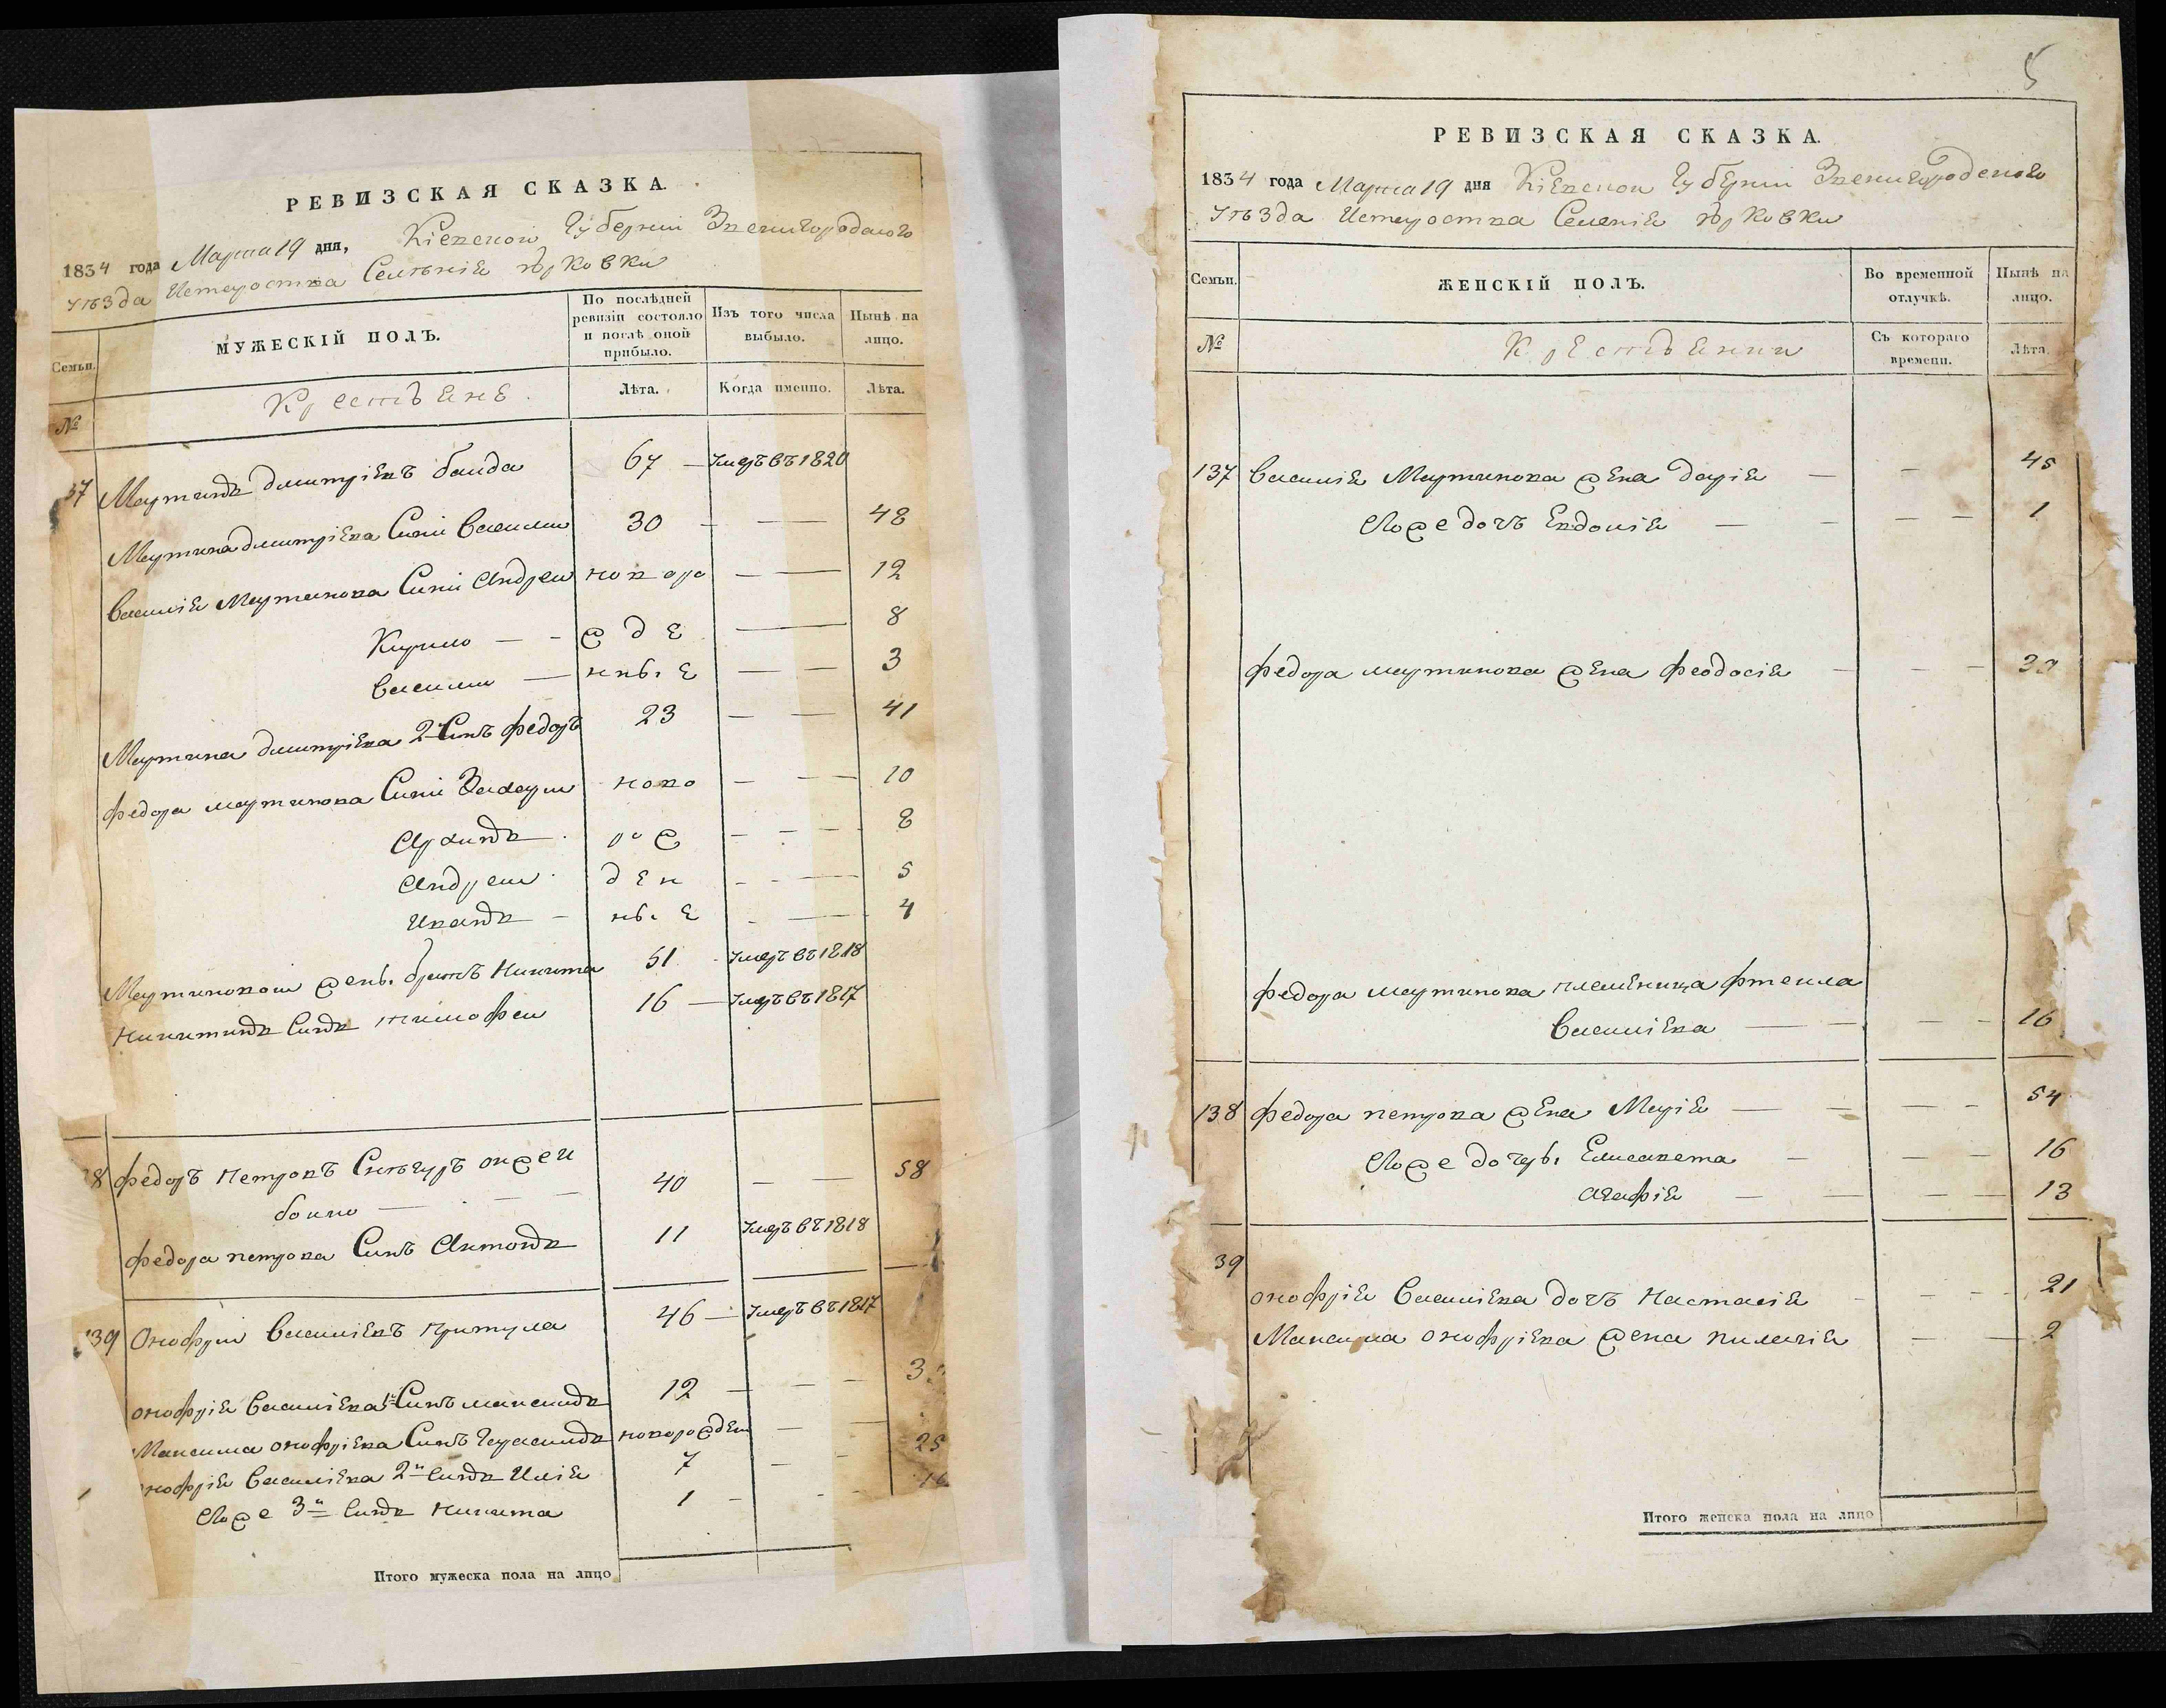 РЕВИЗСКАЯ СКАЗКА.
1834 года Марта 19 дня, Кіевской Губерніи Звенигородского
уѣзда Истороства Селенія Юрковки
Семьи.
МУЖЕСКІЙ ПОЛЪ.
По послѣдней ревизіи состояло и послѣ оной прибыло.
Изъ того числа выбыло.
Нынѣ на лицо.
№
Крестьяне
Лѣта.
Когда именно.
Лѣта.
37 Мартинъ Дмитріевъ 67 — Умеръ въ 1820
Мартина Дмитріева Синъ Василій 30 — — 48
Василія Мартинова Сини Андрей новоро — — 12
Кирило — - ж д е — 8
Василій — нные — — 3
Мартина Дмитріева 2й Синъ Федоръ 23 — — 41
Федора Мартинова Сини Захарій ново — — 10
Архипъ ро ж — — 8
Андрей д е н — — 5
Иванъ — ные — — 4
Мартиновой жены братъ Никита 51 - Умеръ въ 1818
Никитинъ Синъ Тимофей 16 — Умеръ въ 1817
8 Федоръ Петровъ Снѣгуръ онже и
40 — — 58
Федора Петрова Синъ Антонъ 11 Умеръ въ 1818
139 Онофрій Василіевъ Притула 46 — Умеръ въ 1817
Онофрія Василіева 1й Синъ Максимъ 12 — — — 3
Максима Онофріева Синъ Герасимъ новорожден —
Онофрія Василіева 2й Синъ Илія 7 — — 25
Егоже 3й Синъ Никита 1 — - 16
Итого мужеска пола на лицо
5
РЕВИЗСКАЯ СКАЗКА.
1834 года Марта 19 дня Кіевской Губерніи Звенигородского
уѣзда Истороства Селенія Юрковки
Семьи.
ЖЕНСКІЙ ПОЛЪ.
Во временной отлучкѣ.
Нынѣ на лицо.
№
Крестьянки
Съ котораго времени.
Лѣта.
137 Василія Мартинова жена Дарія — — 45
Егоже дочь Евдокія — — — 1
Федора Мартинова жена Феодосія — — —
Федора Мартинова племеница Фтекла
Василіева — — — 16
138 Федора Петрова жена Марія — — — 54
Егоже дочеры Елисавета — — — 16
Агафія — — — 13
39
Онофрія Василіева дочь Настасія — — 21
Максима Онофріева жена Пилагія — — 2
Итого женска пола на лицо